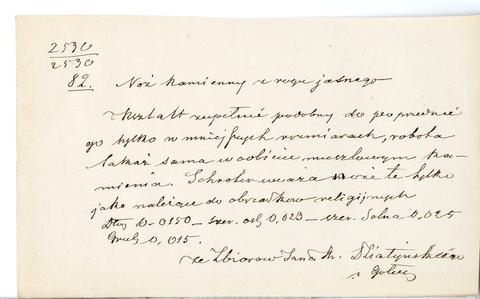 2530
2530
82.
Noż kamienny z rogu jasnego
Kształt zupełnie podobny do poprzednie
go tylko w mniejszych rozmiarach, robota
takaż sama w odbiciu muszlowym ka-
mienia. Schroter uważa noże te tylko
jako należące do obrządków religijnych
Dług 0.0150 – szer. 0,023 – szer. dolna 0,025
Grub 0,015.
ze Zbiorów Jana Działyńskiego
z